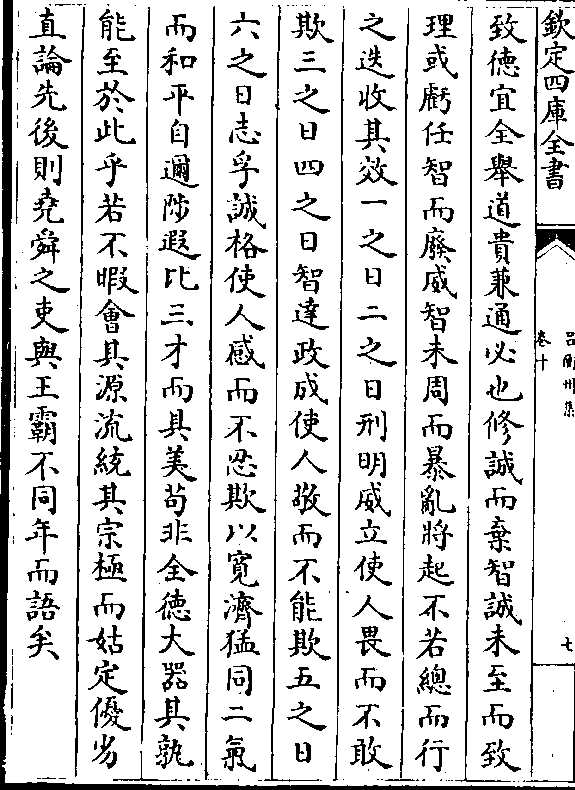 欽定四庫全書
呂衡州集
卷十
七
致德宜全舉道貴兼通必也修誠而棄智誠未至而致
理或虧任智而廢威智未周而暴亂將起不若總而行
之迭收其效一之日二之日刑明威立使人畏而不敢
欺三之日四之日智達政成使人敬而不能欺五之日
六之日志孚誠格使人感而不忍欺以寛濟猛同二氣
而和平自邇陟遐比三才而具美苟非全德大器其孰
能至於此乎若不暇會其源流統其宗極而姑定優劣
直論先後則堯舜之吏與王霸不同年而語矣